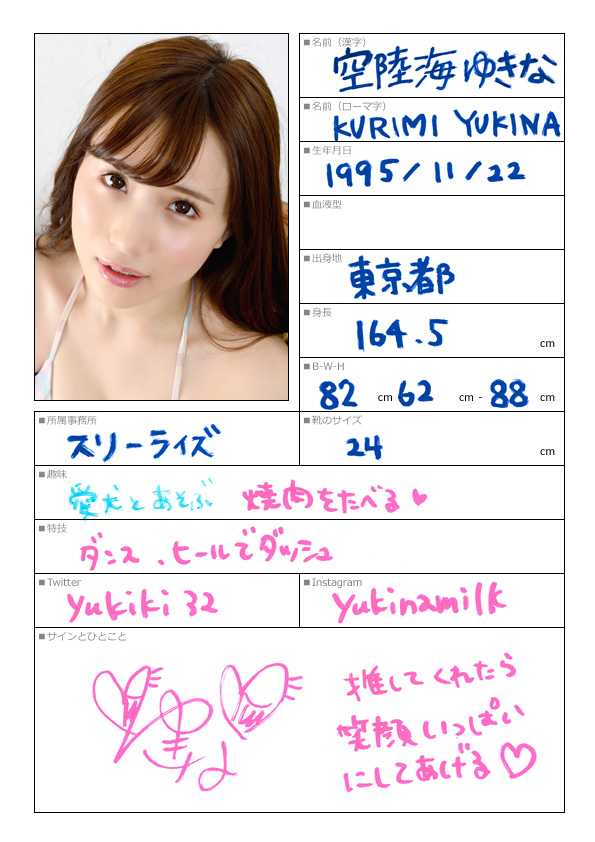 ■名前（漢字）
空陸海ゆきな
■名前（ローマ字）
KURIMI YUKINA
■生年月日
1995/11/22
■血液型
■出身地
東京都
■身長
164.5 cm
■B-W-H
82 cm 62 cm - 88 cm
■所属事務所
スリーライズ
■靴のサイズ
24 cm
■趣味
愛犬とあそぶ 焼肉をたべる♡
■特技
ダンス、ヒールでダッシュ
■Twitter
yukiki32
■Instagram
yukinamilk
■サインとひとこと
ゆきな
推してくれたら
笑顔いっぱい
にしてあげる♡